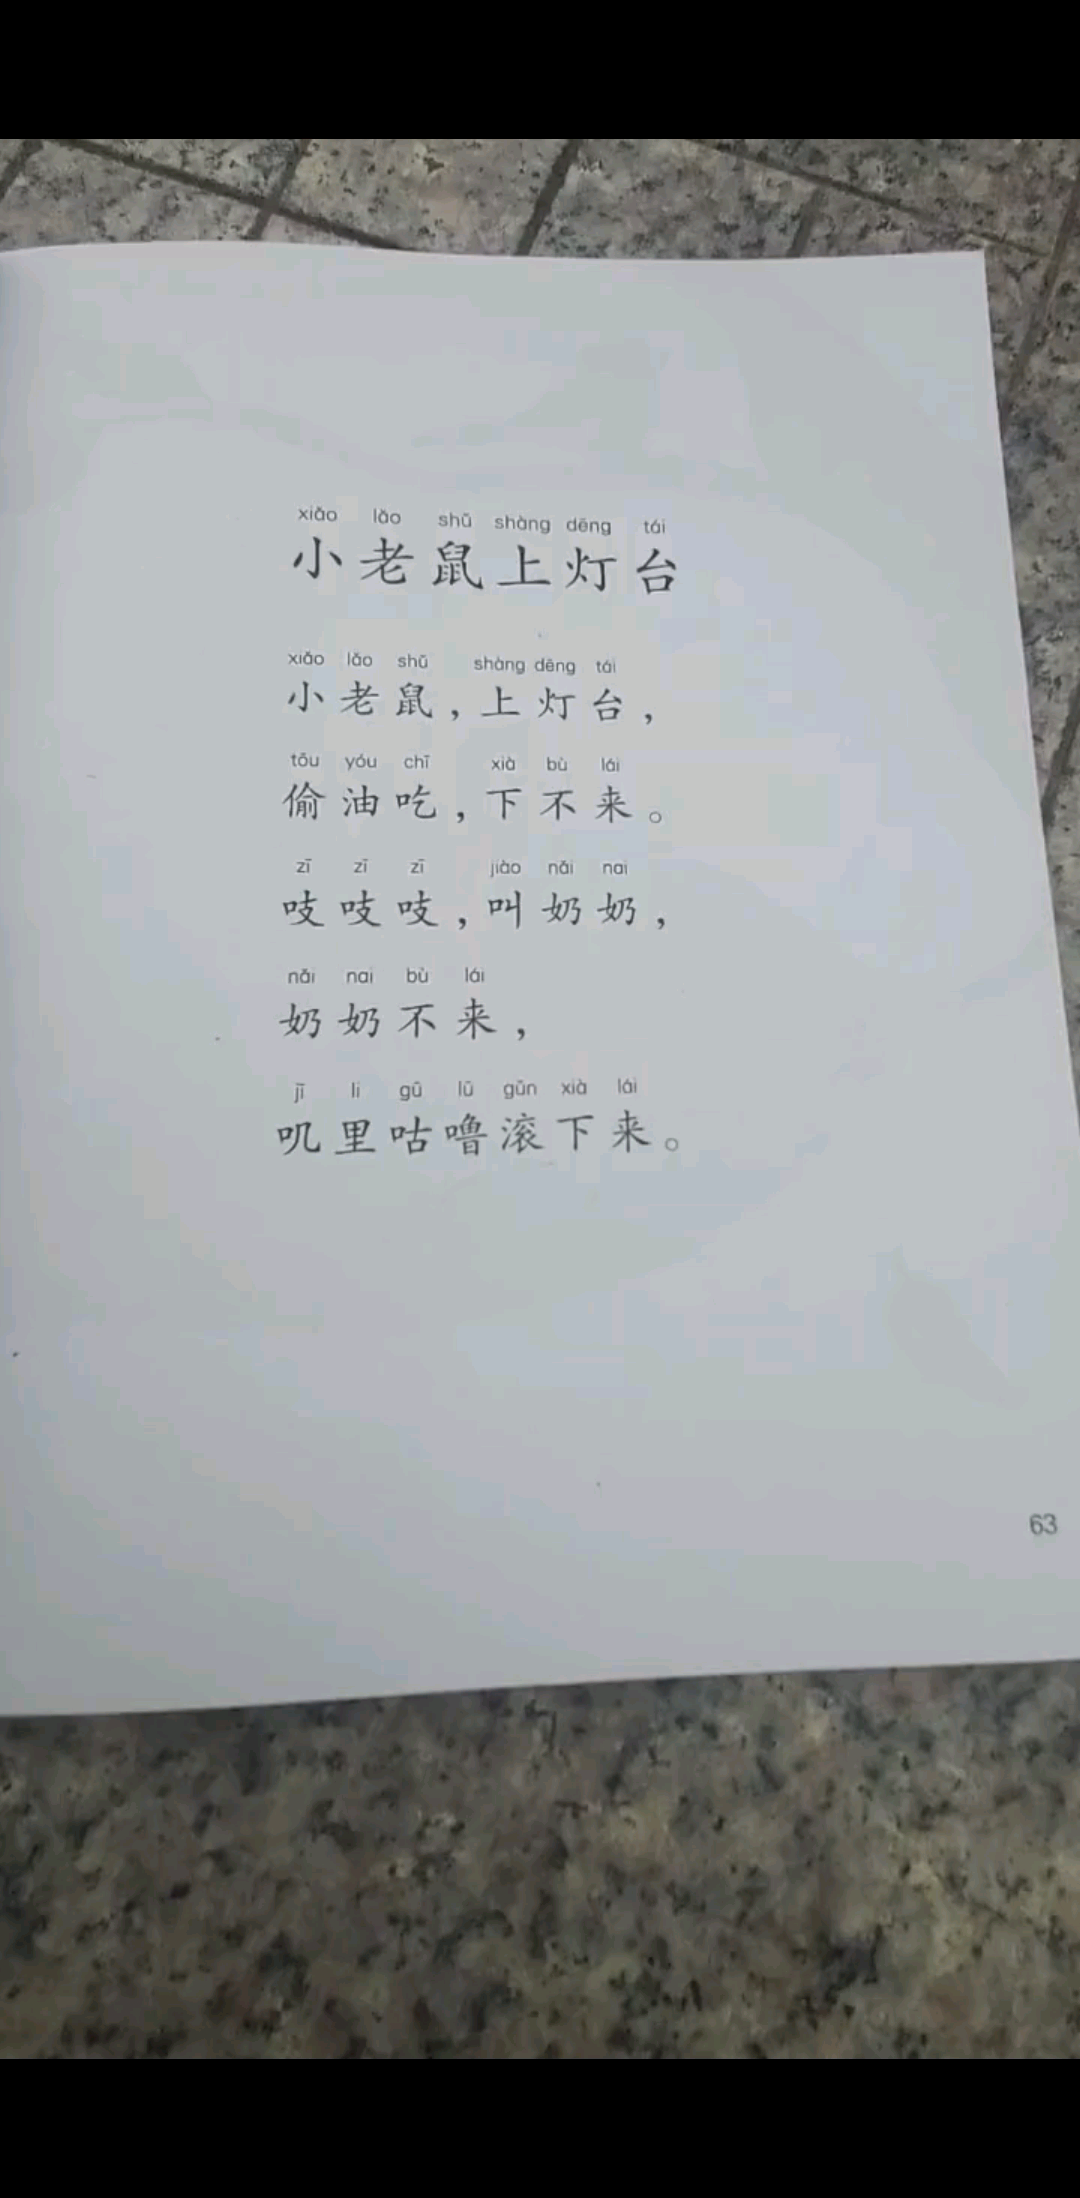 xiǎo lǎo shǔ shàng dēng tái
小老鼠上灯台
xiǎo lǎo shǔ shàng dēng tái
小老鼠，上灯台，
tōu yóu chī xià bù lái
偷油吃，下不来。
zī zī zī jiào nǎi nai
吱吱吱，叫奶奶，
nǎi nai bù lái
奶奶不来，
jī li gū lū gǔn xià lái
叽里咕噜滚下来。
63